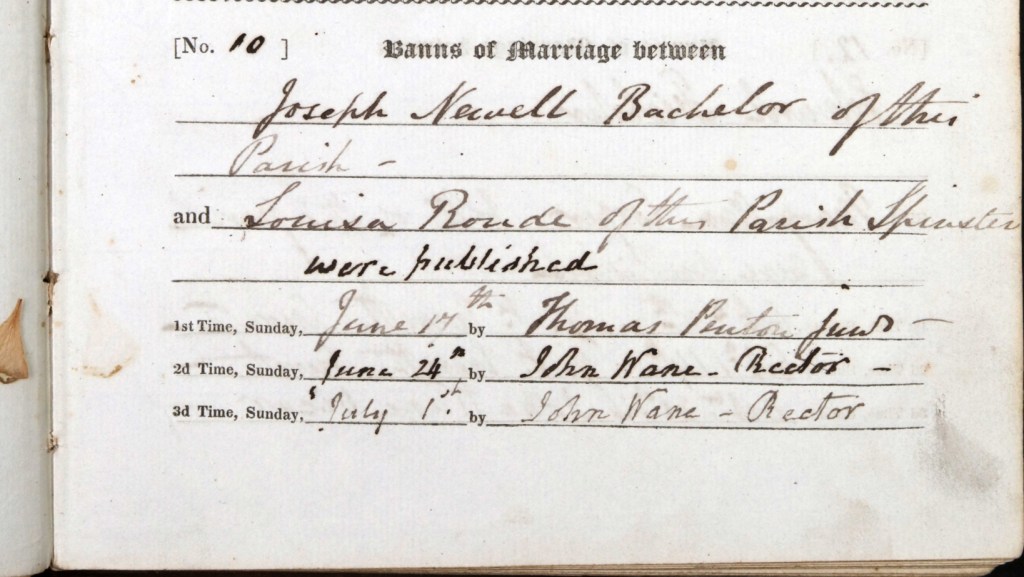 [No. 10 ] Banns of Marriage between
Joseph Newell Bachelor of this
Parish -
and Louisa Ronde of this Parish Spinster
were published
1st Time, Sunday, June 17th by Thomas Penton Junr -
2d Time, Sunday, June 24th by John Wane - Rector -
3d Time, Sunday, July 1st by John Wane - Rector